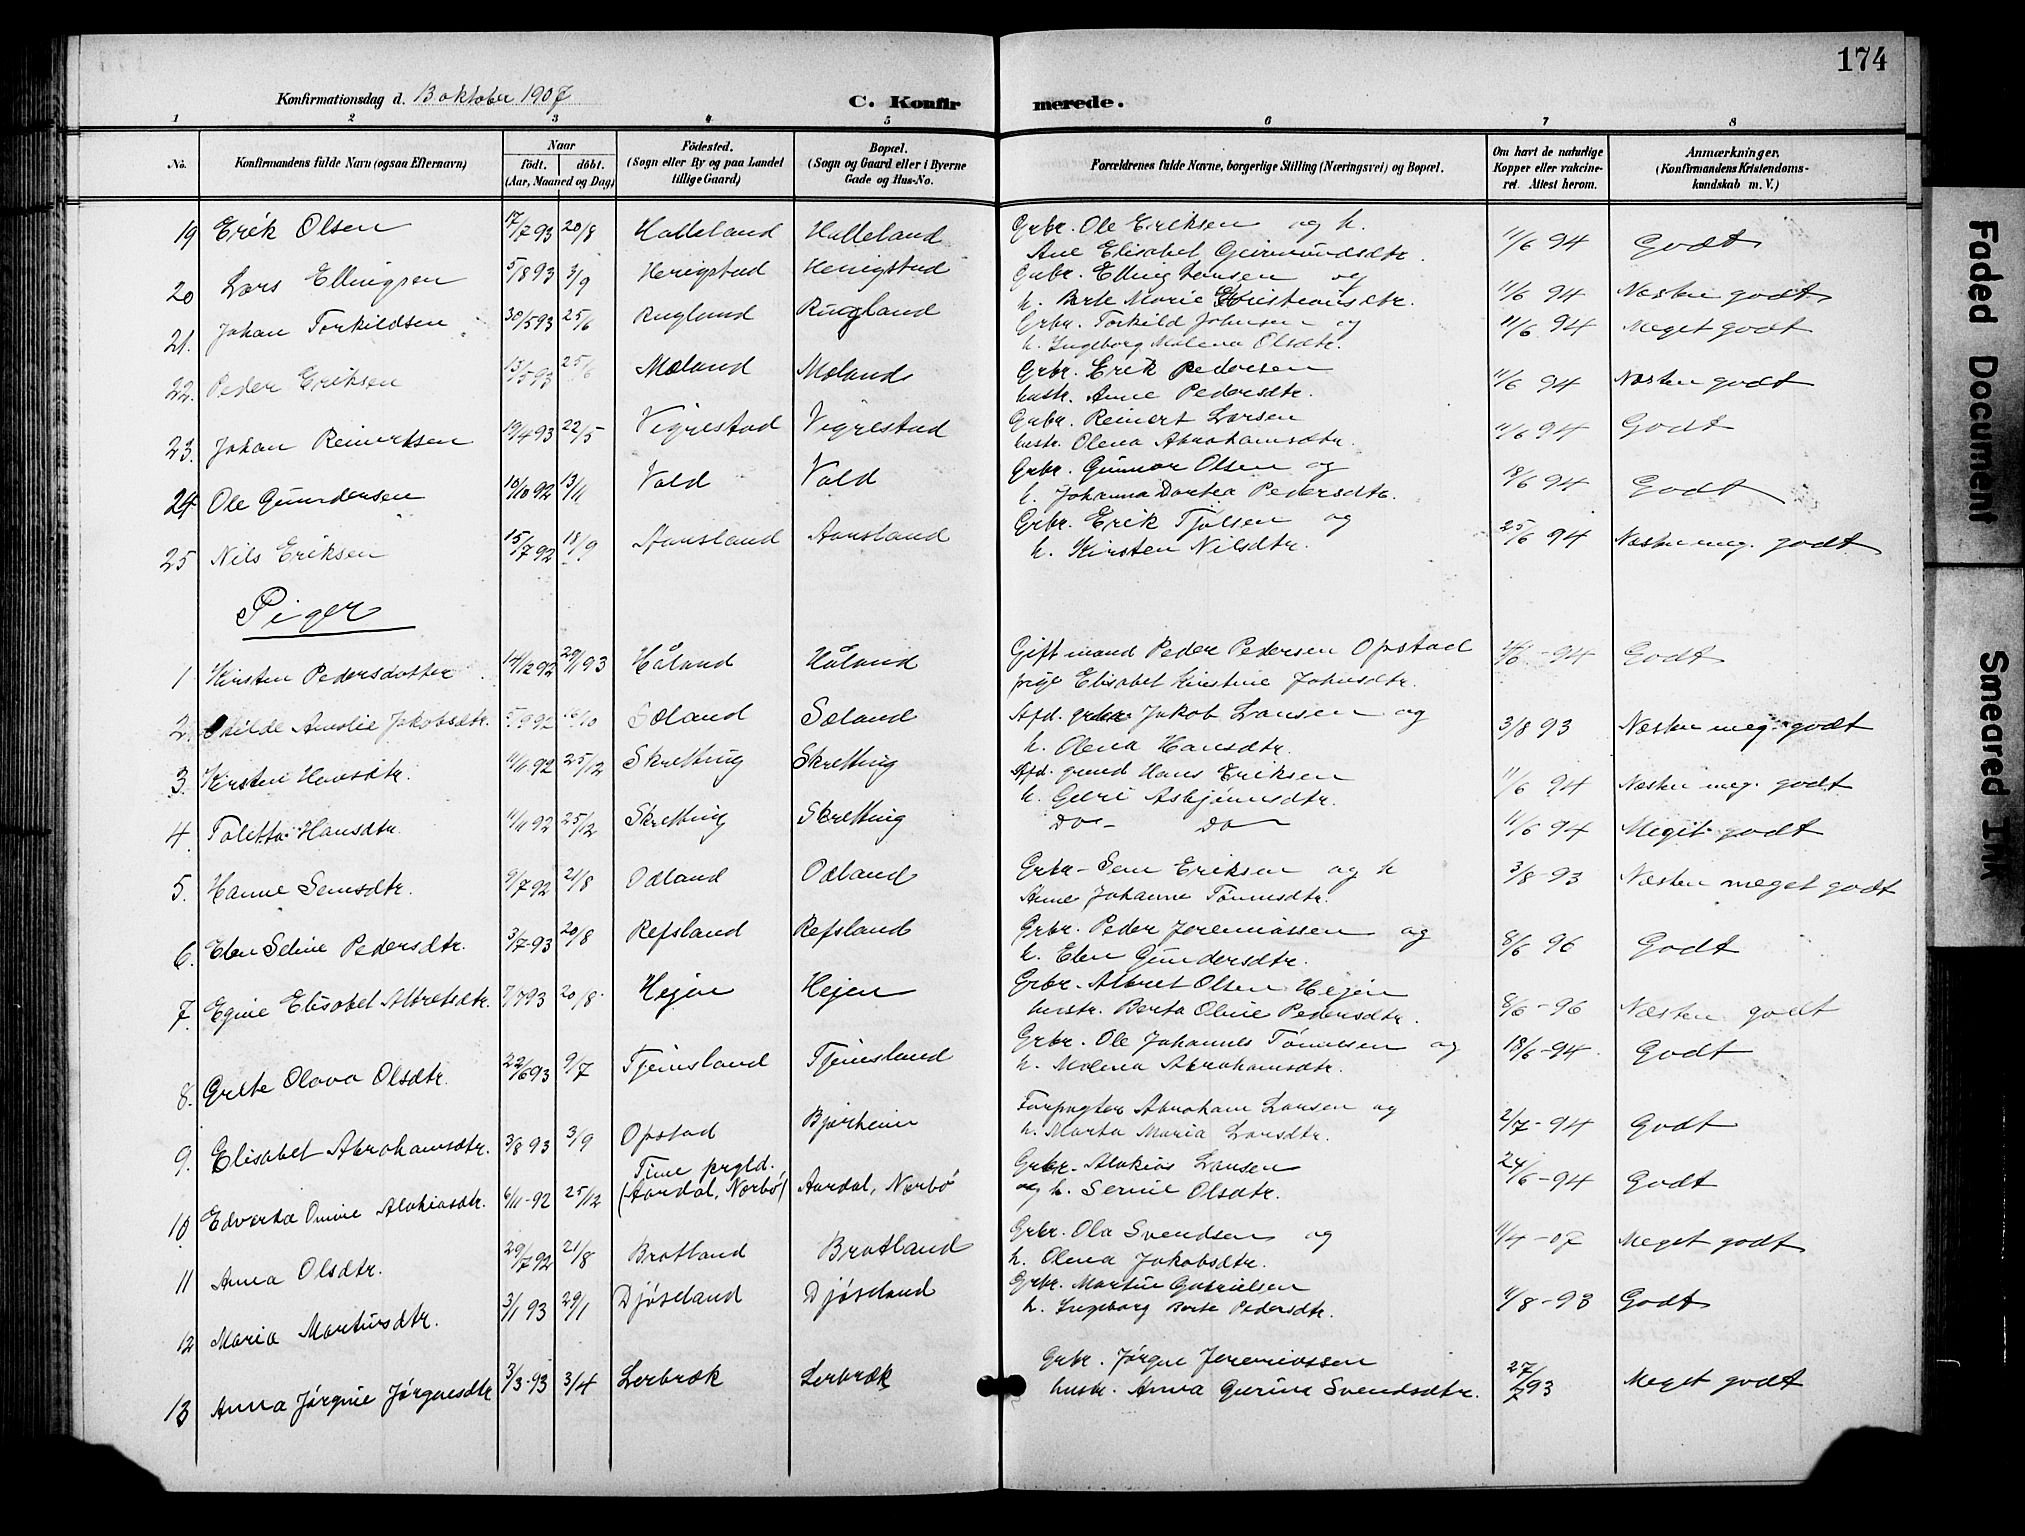 174
Konfirmationsdag d. 13 oktober 1907
C. Konfir merede.
1 2 3 4 5 6 7 8
No. Konfirmandens fulde Navn (ogsaa Efternavn) Naar født. døbt. (Aar, Maaned og Dag) Fødested. (Sogn eller By og paa Landet tillige Gaard) Bopæl. (Sogn og Gaard eller i Byerne Gade og Hus-No. Forældrenes fulde Navne, borgerlige Stilling (Næringsvei) og Bopæl. Om havt de naturlige Kopper eller vakcineret. Attest herom. Anmærkninger. (Konfirmandens Kristendomskundskab m. V.)
19 Erik Olsen 17/7 93 20/8 Halleland Halleland Grbr. Ole Eriksen og h. Ane Elisabet Geirmundsdtr. 11/6 94 Godt
20 Lars Ellingsen 5/8 93 3/9 Herigstad Herigstad Grbr. Elling Larsen og h. Berte Marie Kristiansdtr. 11/6 94 Næsten godt
21. Johan Torkildsen 30/5 93 25/6 Rugland Rugland Grbr. Torkild Johnsen og h. Ingeborg Malena Olsdtr. 11/6 94 Meget godt
22. Peder Eriksen 13/5 93 25/6 Mæland Mæland Grbr. Erik Pedersen hustr. Anne Pedersdtr. 11/6 94 Næsten godt
23. Johan Reinertsen 19/4 93 22/5 Vigrestad Vigrestad Grbr. Reinert Larsen hustr. Olena Abrahamsdtr. 11/6 94 Godt
24 Ole Gundersen 16/10 92 13/11 Vold Vold Grbr. Gunnar Olsen og h. Johanna Dortea Pedersdtr. 18/6 94 Godt
25 Nils Eriksen 15/7 92 18/9 Aansland Aansland Grbr. Erik Tjølsen og h. Kirsten Nilsdtr. 25/6 94 Næsten meg. godt
Piger
1 Kirsten Pedersdotter 14/12 92 29/1 93 Håland Håland Gift mand Peder Pedersen Opstad pige Elisabet Kirstine Johnsdtr. - 94 Godt
2. Amalie Jakobsdtr. 5/9 92 16/10 Sæland Sæland Afd. grbr. Jakob Larsen og h. Olena Hansdtr. 3/8 93 Næsten meg. godt
3. Kirsten Hansdtr. 11/11 92 25/12 Skretting Skretting Afd. grmd Hans Eriksen h. Guri Asbjørnsdtr. 11/6 94 Næsten meg. godt
4. Taletta Hansdtr. 11/11 92 25/12 Skretting Skretting Do - Do 11/6 94 Meget godt
5. Hanne Semsdtr. 9/7 92 21/8 Ødland Ødland Grbr - Sem Eriksen og h Anne Johanne Tønnesdtr. 3/8 - 93 Næsten meget godt
6. Elen Seline Pedersdtr. 3/7 - 93 20/8 Refsland Refsland Grbr. Peder Jeremiassen og h. Elen Gundersdtr. 8/6 96 Godt
7. Egine Elisabet Albretsdtr. 7/7 93 20/8 Hejen Hejen Grbr. Albret Olsen Hejen hustr. Berta Oline Pedersdtr. 8/6 - 96 Næsten godt
8. Grete Olava Olsdtr. 22/6 93 9/7 Tjemsland Tjemsland Grbr. Ole Johannes Tønnesen og h. Malena Abrahamsdtr. 18/6 - 94. Godt
9. Elisabet Abrahamsdtr. 3/8 93 3/9 Opstad Bjorheim Forpagter Abraham Larsen og h. Marta Maria Larsdtr. 2/7 - 94 Godt
10 Edvarda Alakiasdtr. 6/11 - 92 25/12 Time prgld. (Aardal, Nærbø) Aardal, Nærbø Grbr. Alakias Larsen og h. Serine Olsdtr. 24/6 - 94 Godt
11 Anna Olsdtr. 29/7 92 21/8 Bratland Bratland Grbr. Ola Svendsen og h. Olena Jakobsdtr. 11/4 - 07 Meget godt
12 Maria Martinsdtr. 3/1 93 29/1 Djøseland Djøseland Grbr. Martin Gabrielsen h. Ingeborg Berte Pedersdtr. 11/8 - 93 Godt
13 Anna Jørgine Jørgensdtr 3/3 - 93 3/4 Lerbræk Lerbræk Grbr. Jørgen Jeremiassen hustr. Anna Gurina Svendsdtr. 27/7 93 Meget godt
Faded Document
Smeared Ink